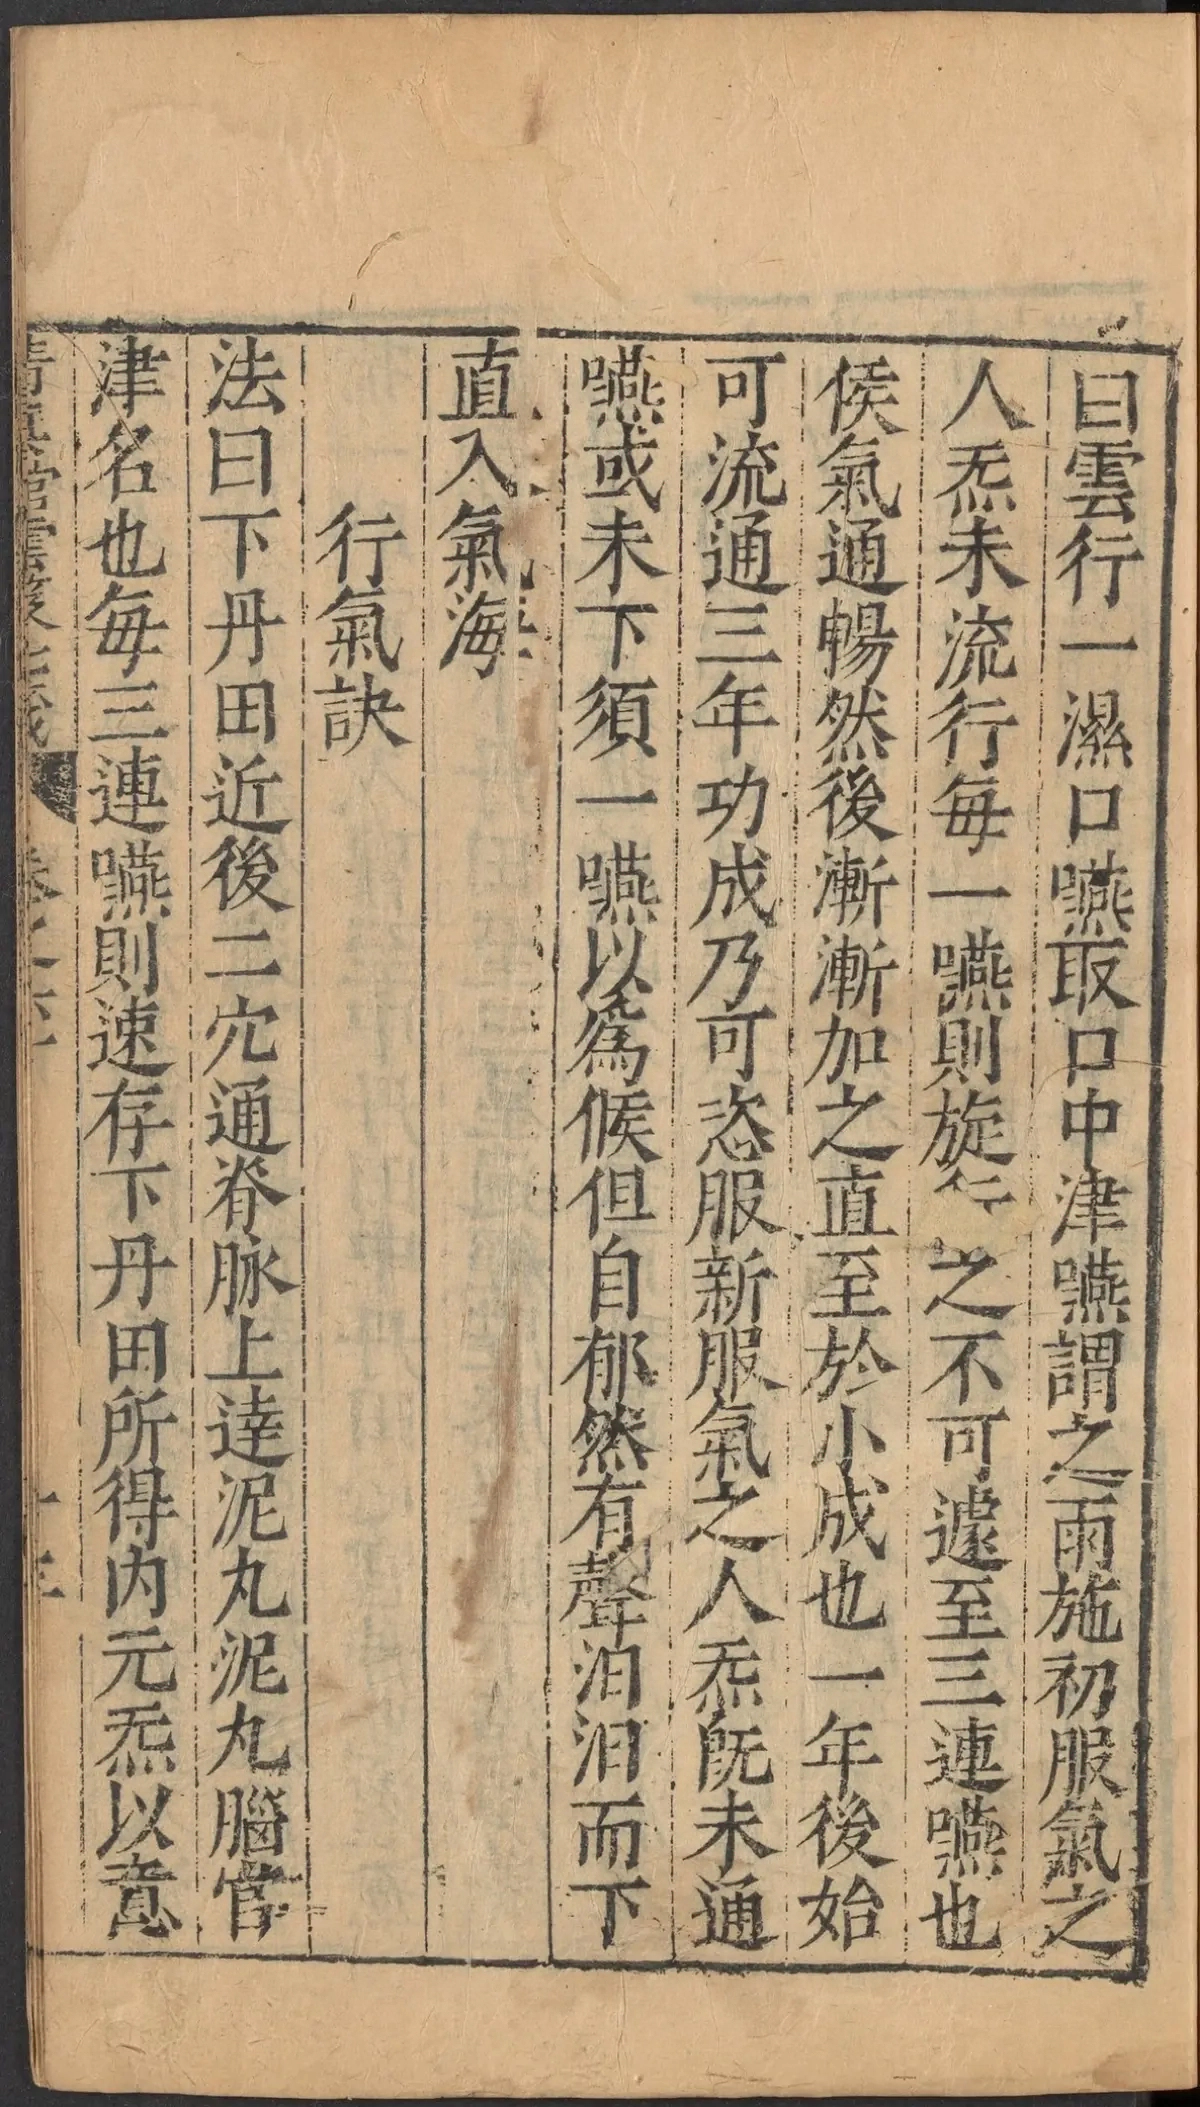 曰雲行一濕口嚥取口中津嚥謂之雨施初服氣之
人炁未流行每一嚥則旋行之不可遽至三連嚥也
侯氣通暢然後漸漸加之直至於小成也一年後始
可流通三年功成乃可恣服新服氣之人炁旣未通
嚥或未下須一嚥以爲候但自郁然有聲汨汨而下
直入氣海
行氣訣
法曰下丹田近後二穴通脊脉上逹泥丸泥丸腦宮
津名也每三連嚥則速存下丹田所得内元炁以意